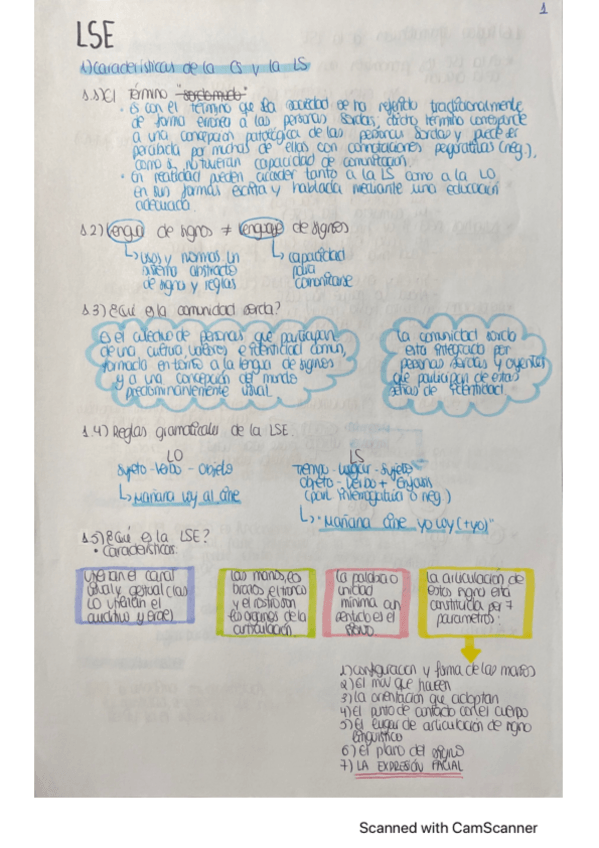 1
LSE
1) Características de la CS y la LS
1.1) El término "sordomudo"
• Es con el término que la sociedad se ha referido tradicionalmente
de forma errónea a las personas sordas; dicho término corresponde
a una concepción patológica de las personas sordas y puede ser
percibida por muchas de ellas con connotaciones peyorativas (neg.),
como si no tuvieran capacidad de comunicación.
• En realidad pueden acceder tanto a la LS como a la LO
en sus formas escrita y hablada mediante una educación
adecuada.
1.2) Lengua de signos ≠ lenguaje de signos
↳ usos y normas un
sistema abstracto
de signo y reglas
↳ capacidad
para
comunicarse
1.3) ¿Qué es la comunidad sorda?
Es el colectivo de personas que participan
de una cultura, valores e identidad común,
formada en torno a la lengua de signos
y a una concepción del mundo
predominantemente visual.
La comunidad sorda
está integrada por
personas sordas y oyentes
que participan de estas
señas de identidad.
1.4) Reglas gramaticales de la LSE.
LO
sujeto - verbo - objeto
↳ Mañana voy al cine
LS
Tiempo - lugar - sujeto
objeto - verbo +
(part. interrogativa o neg.)
↳ "Mañana cine yo voy (+yo)"
1.5) ¿Qué es la LSE?
• Características:
Utilizan el canal
visual y gestual (las
LO utilizan el
auditivo y oral)
Las manos, los
brazos, el tronco
y el rostro son
los órganos de la
articulación.
La palabra o
unidad
mínima con
sentido es el
SIGNO
La articulación de
estos signos está
constituida por 7
parámetros:
1) configuración y forma de las manos
2) El mov que hacen
3) la orientación que adoptan
4) El punto de contacto con el cuerpo
5) El lugar de articulación de signo
lingüístico
6) El plano del signo
7) LA EXPRESIÓN FACIAL
Scanned with CamScanner